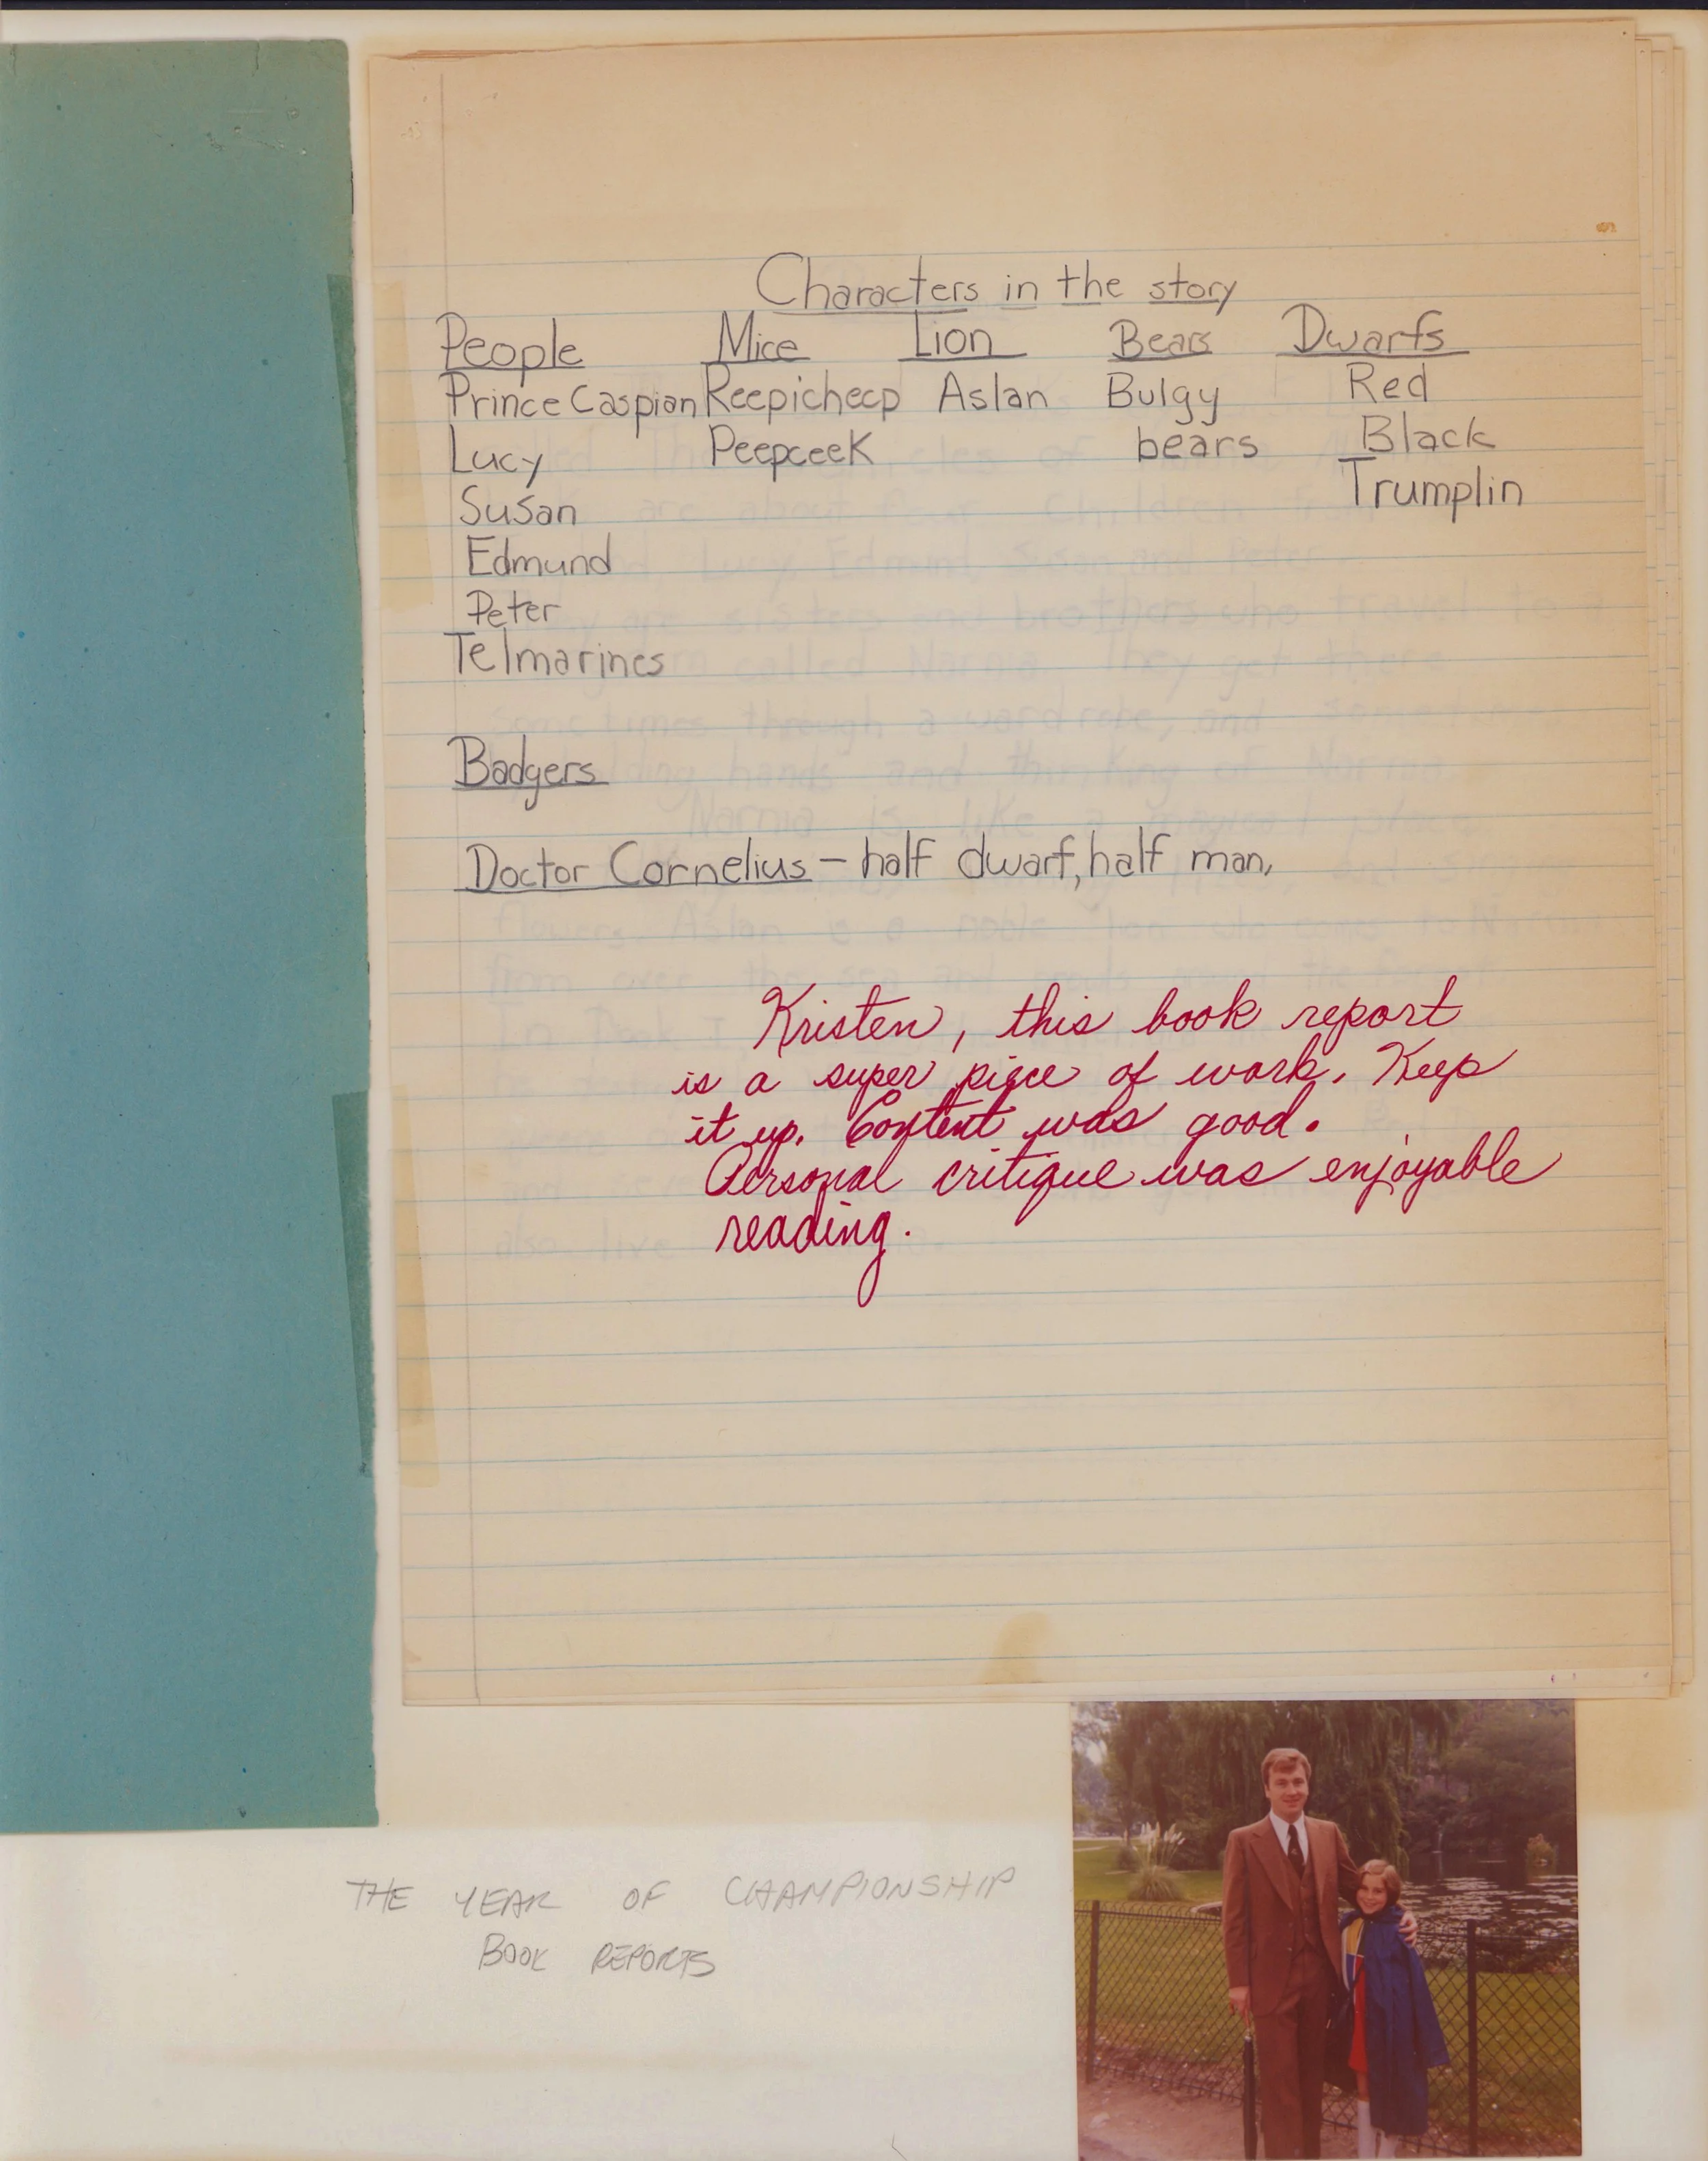 Characters in the story
People Mice Lion Bears Dwarfs
Prince Caspian Reepicheep Aslan Bulgy Red
Lucy Peepceek bears Black
Susan Trumplin
Edmund
Peter
Telmarines
Badgers
Doctor Cornelius - half dwarf, half man,
Kristen, this book report
is a super piece of work. Keep
it up. Content was good.
Personal critique was enjoyable
reading.
THE YEAR OF CHAMPIONSHIP
BOOK REPORTS